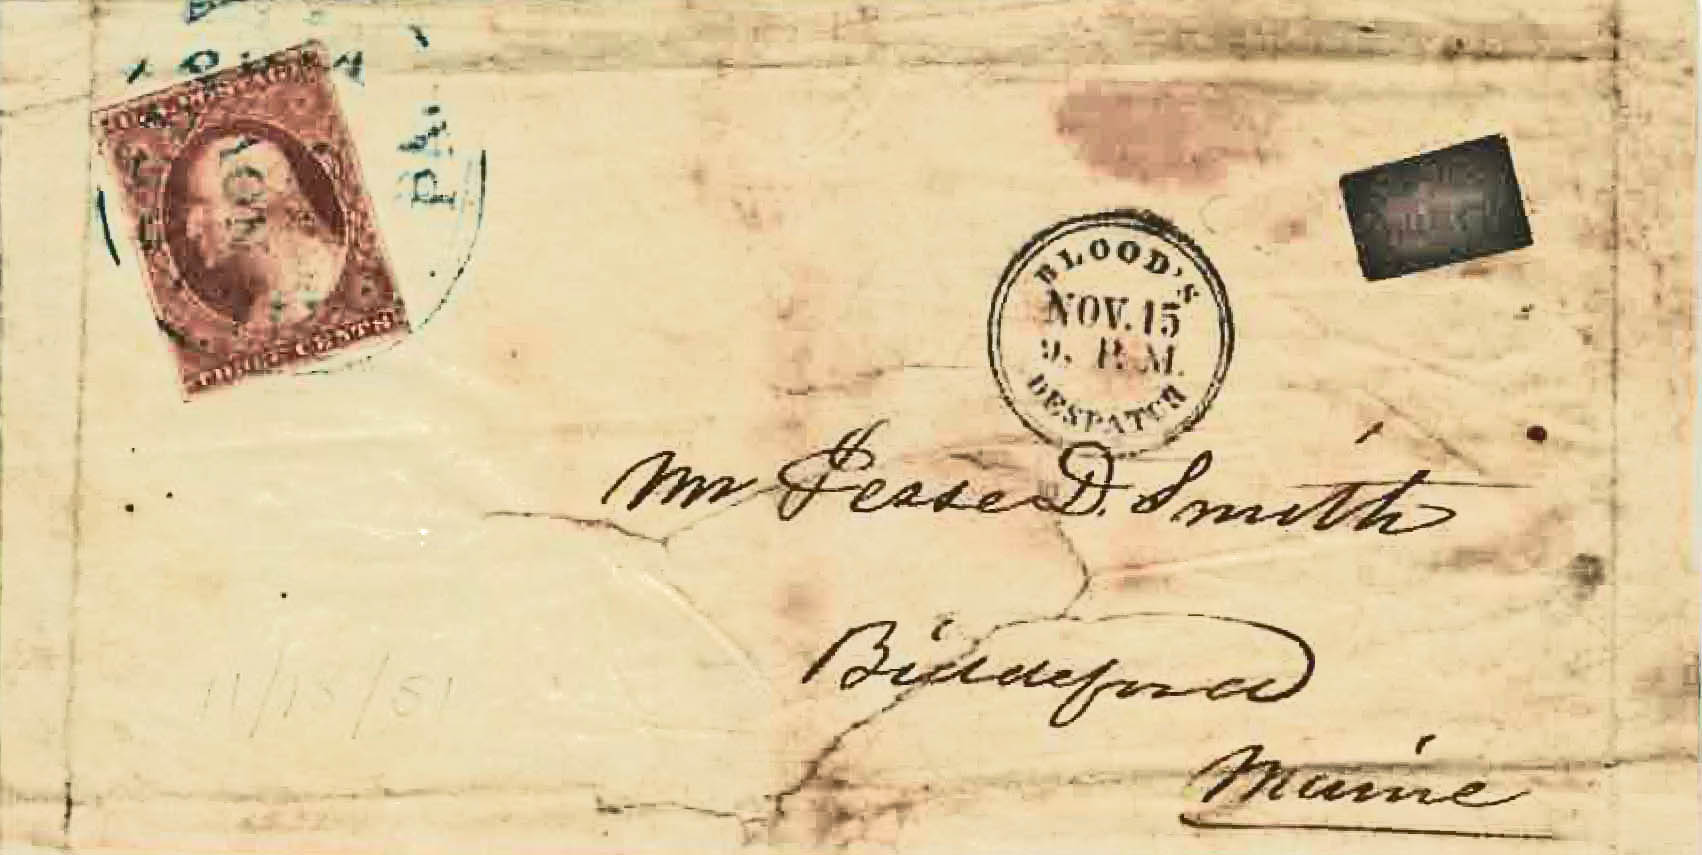 PA.
NOV
THREE CENTS
BLOOD'S
NOV. 15
9. P.M.
DESPATCH
Mr Jesse D. Smith
Biddeford
Maine
11/15/51